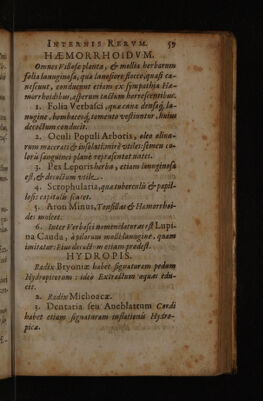 INTERNIS RERUM. 59
HÆMORRHOIDUM.
Omnes Pilosæ plantæ, & multa herbarum
folia lanuginosa, quæ lanosiore flocco, quasi ca-
nescunt, conducunt etiam ex sympathia Hæ-
morrhoidibus, asperum tactum horrescentibus.
1. Folia Verbasci, quæ cana densaq; la-
nugine, bombaceoq; tomento vestiuntur, huius
decoctum conducit.
2. Oculi Populi Arboris, oleo
macerati & insolati mirè utiles: semen
coloris sanguinei planè repræsentat nates.
3. Pes Leporis herba, etiam lanuginosa
est, & decoctum utile.
4. Scrophularia, quæ tuberculis & papil-
losis capitulis scatet.
5. Aron Minus, Tensillas & Hæmorrhoi-
des molles.
6. Inter Verbasci nomenclaturas est Lupi-
na Cauda, à pilorum molli lanugine, quam
imitatur: Eius decoctum etiam prodest.
HYDROPIS.
Radix Bryoniæ habet signaturam pedum
Hydropicorum: ideo Extractum aquas edu-
cit.
2. Radix Michoacæ.
3. Dentaria seu Aneblattum Cordi
habet etiam signaturam inflationis Hydro-
picæ.